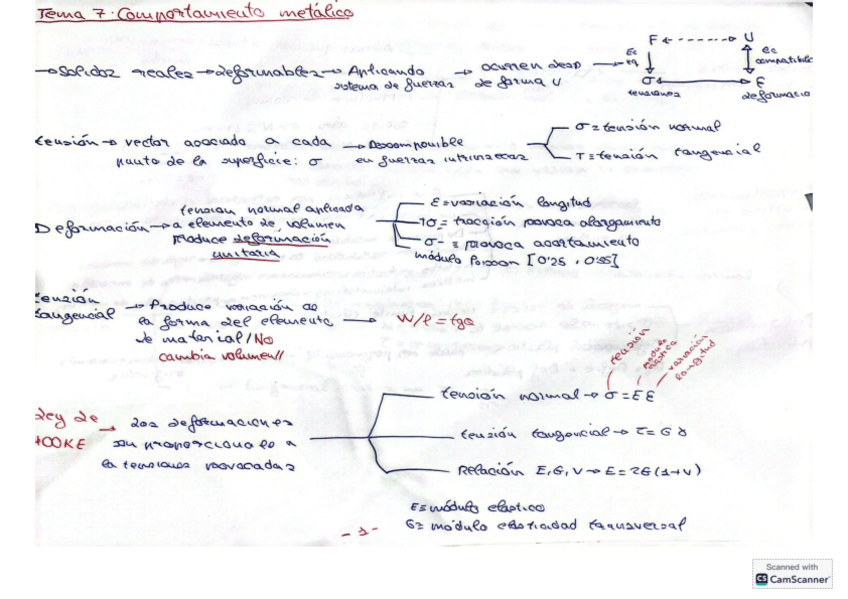 Tema 7: Comportamiento metálico
→ Solidos reales → deformables → Aplicando sistema de fuerzas → ocurren desp de forma U
F ←----→ U
Ec eq
ec compatibilid
σ ←→ ε
tensiones
deformacio
tensión → vector asociado a cada punto de la superficie: σ → Descomponible en fuerzas intrinsecas
σ = tensión normal
T = tensión tangencial
Deformación → tension normal aplicada a elemento de volumen produce deformación unitaria
ε = variación longitud
↑σ = tracción provoca alargamiento
σ- = provoca acortamiento
módulo Poisson [0'25, 0'35]
tensión tangencial → Produce variación de la forma del elemento de material/No cambia volumen//
→ W/l = tgθ
Ley de HOOKE → Las deformaciones son proporcionales a la tensiones provocadas
tensión normal → σ = E ε
tensión
modulo elastico
variación longitud
tensión tangencial → τ = G γ
Relación E, G, V → E = 2G (1+V)
E ≡ módulo elastico
G ≡ módulo elasticidad transversal
- 1 -
Scanned with
CS CamScanner